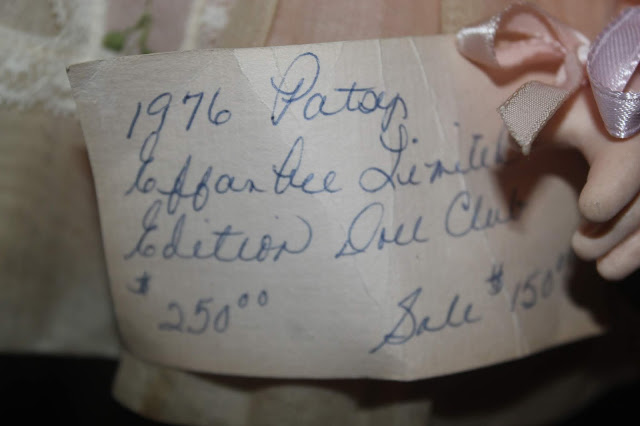 1976 Patsy
Effanbee Limited
Edition Doll Club
$250.00 Sale $150.00